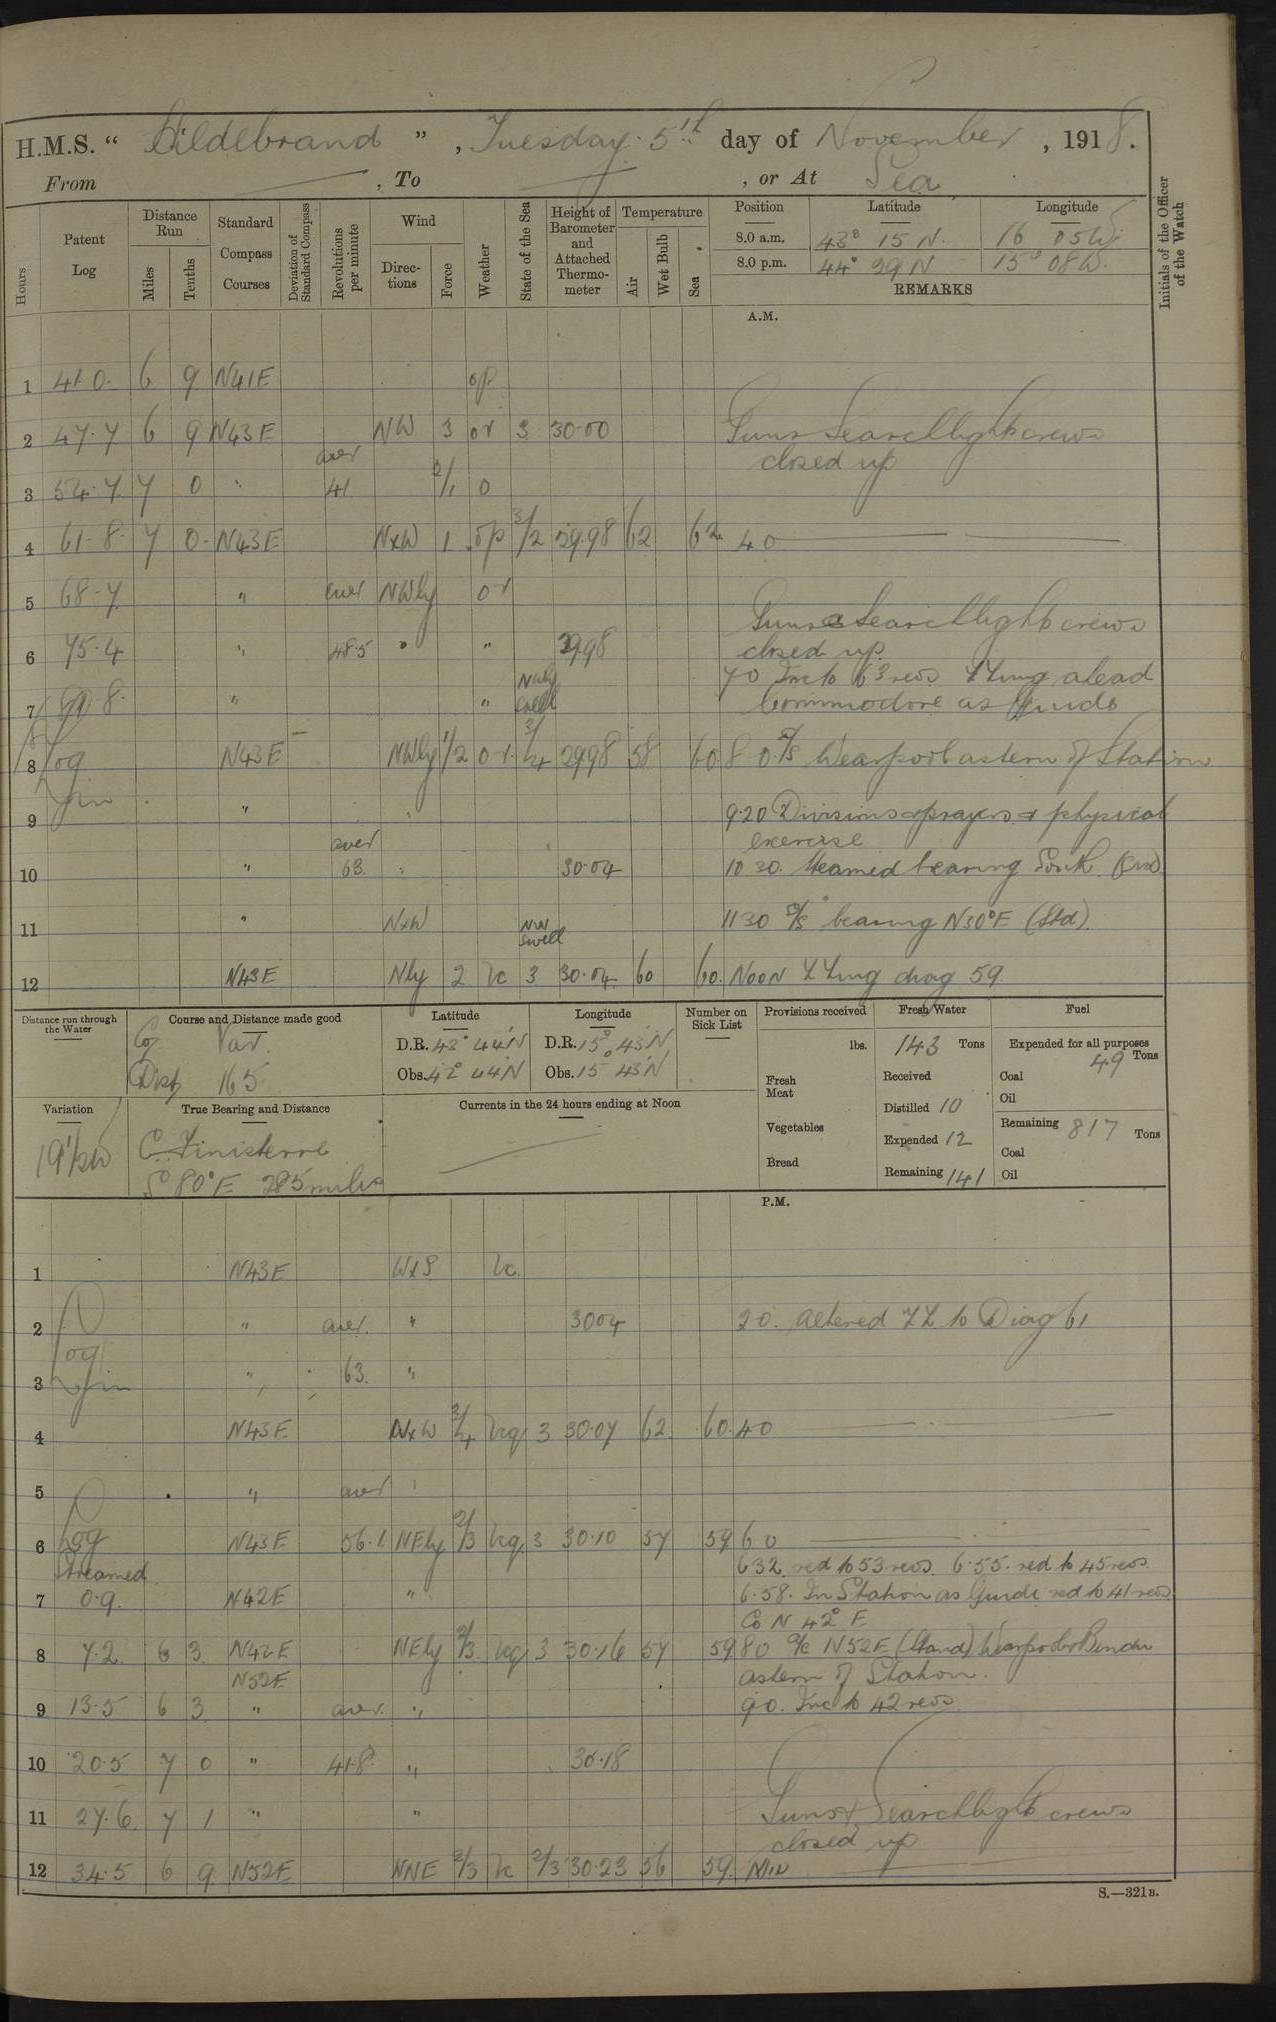 H.M.S. " Hildebrand " , Tuesday 5th day of November , 1918.
From — , To — , or At Sea
Hours
Patent Log
Distance Run
Miles
Tenths
Standard Compass Courses
Deviation of Standard Compass
Revolutions per minute
Wind
Directions
Force
Weather
State of the Sea
Height of Barometer and Attached Thermometer
Temperature
Air
Wet Bulb
Sea
Position Latitude Longitude
8.0 a.m. 43° 15 N. 16 05 W.
8.0 p.m. 44° 29 N 15° 08 W.
REMARKS
Initials of the Officer of the Watch
A.M.
1 41.0. 6 9 N41E op
2 47.7 6 9 N43E NW 3 or 3 30.00 Guns Searchlight crews
closed up
3 54.7 7 0 " aver 41 2/1 0
4 61.8 7 0 N43E NxW 1 op 3/2 29.98 62 62 4 0
5 68.7 " aver NWly or
Guns & Searchlight crews
6 75.4 " 48.5 " " 29.98 closed up
7 0 Inc to 63 revs Z Zing ahead
7 " " NWly swell Commodore as Guide
8 Log N43E NWly 1/2 or 3/4 29.98 58 60 8 0 Wearpool astern of Station
9 in " 9.20 Divisions & prayers & physical
exercise
10 " aver 63. 30.04 10 30. bearing South
11 " NxW NW swell 11 30 bearing N30°E (Std)
12 N43E Nly 2 bc 3 30.04 60 60. Noon Z Zing diag 59
Distance run through the Water
Course and Distance made good
Co Var.
Dist 165
Latitude
D.R. 43° 44' N
Obs. 42° 44' N
Longitude
D.R. 15° 43' N
Obs. 15° 43' N
Number on Sick List
Provisions received
lbs.
Fresh Meat
Vegetables
Bread
Fresh Water
143 Tons
Received
Distilled 10
Expended 12
Remaining 141
Fuel
Expended for all purposes
49 Tons
Coal
Oil
Remaining 817 Tons
Coal
Oil
Variation
19 1/2 W
True Bearing and Distance
C. Finisterre
S 80° E 285 miles
Currents in the 24 hours ending at Noon
P.M.
1 N43E WxS bc.
2 " aver. " 30.04 2 0. Altered ZZ to Diag 61
Log
3 in " 63. "
4 N43E NxW 3/4 bcq 3 30.07 62. 60. 4 0
5 " aver
6 Log N43E 56.1 NEly 2/3 bcq 3 30.10 57 59 6 0
Streamed 6 32 red to 53 revs. 6.55. red to 45 revs.
7 0.9. N42E " 6.58. In Station as Guide red to 41 revs
Co N 42° E
8 7.2 6 3 N42E NEly 2/3 bcq 3 30.16 57 59 8 0 a/c N52E (Stand) Wearpool &
N52E astern of Station.
9 13.5 6 3 " aver. " 9 0. Inc to 42 revs
10 20.5 7 0 " 41.8. " 30.18
11 27.6 7 1 " " Guns & Searchlight crews
closed up
12 34.5 6 9 N52E NNE 2/3 bc 2/3 30.23 56 59.
S.—321B.